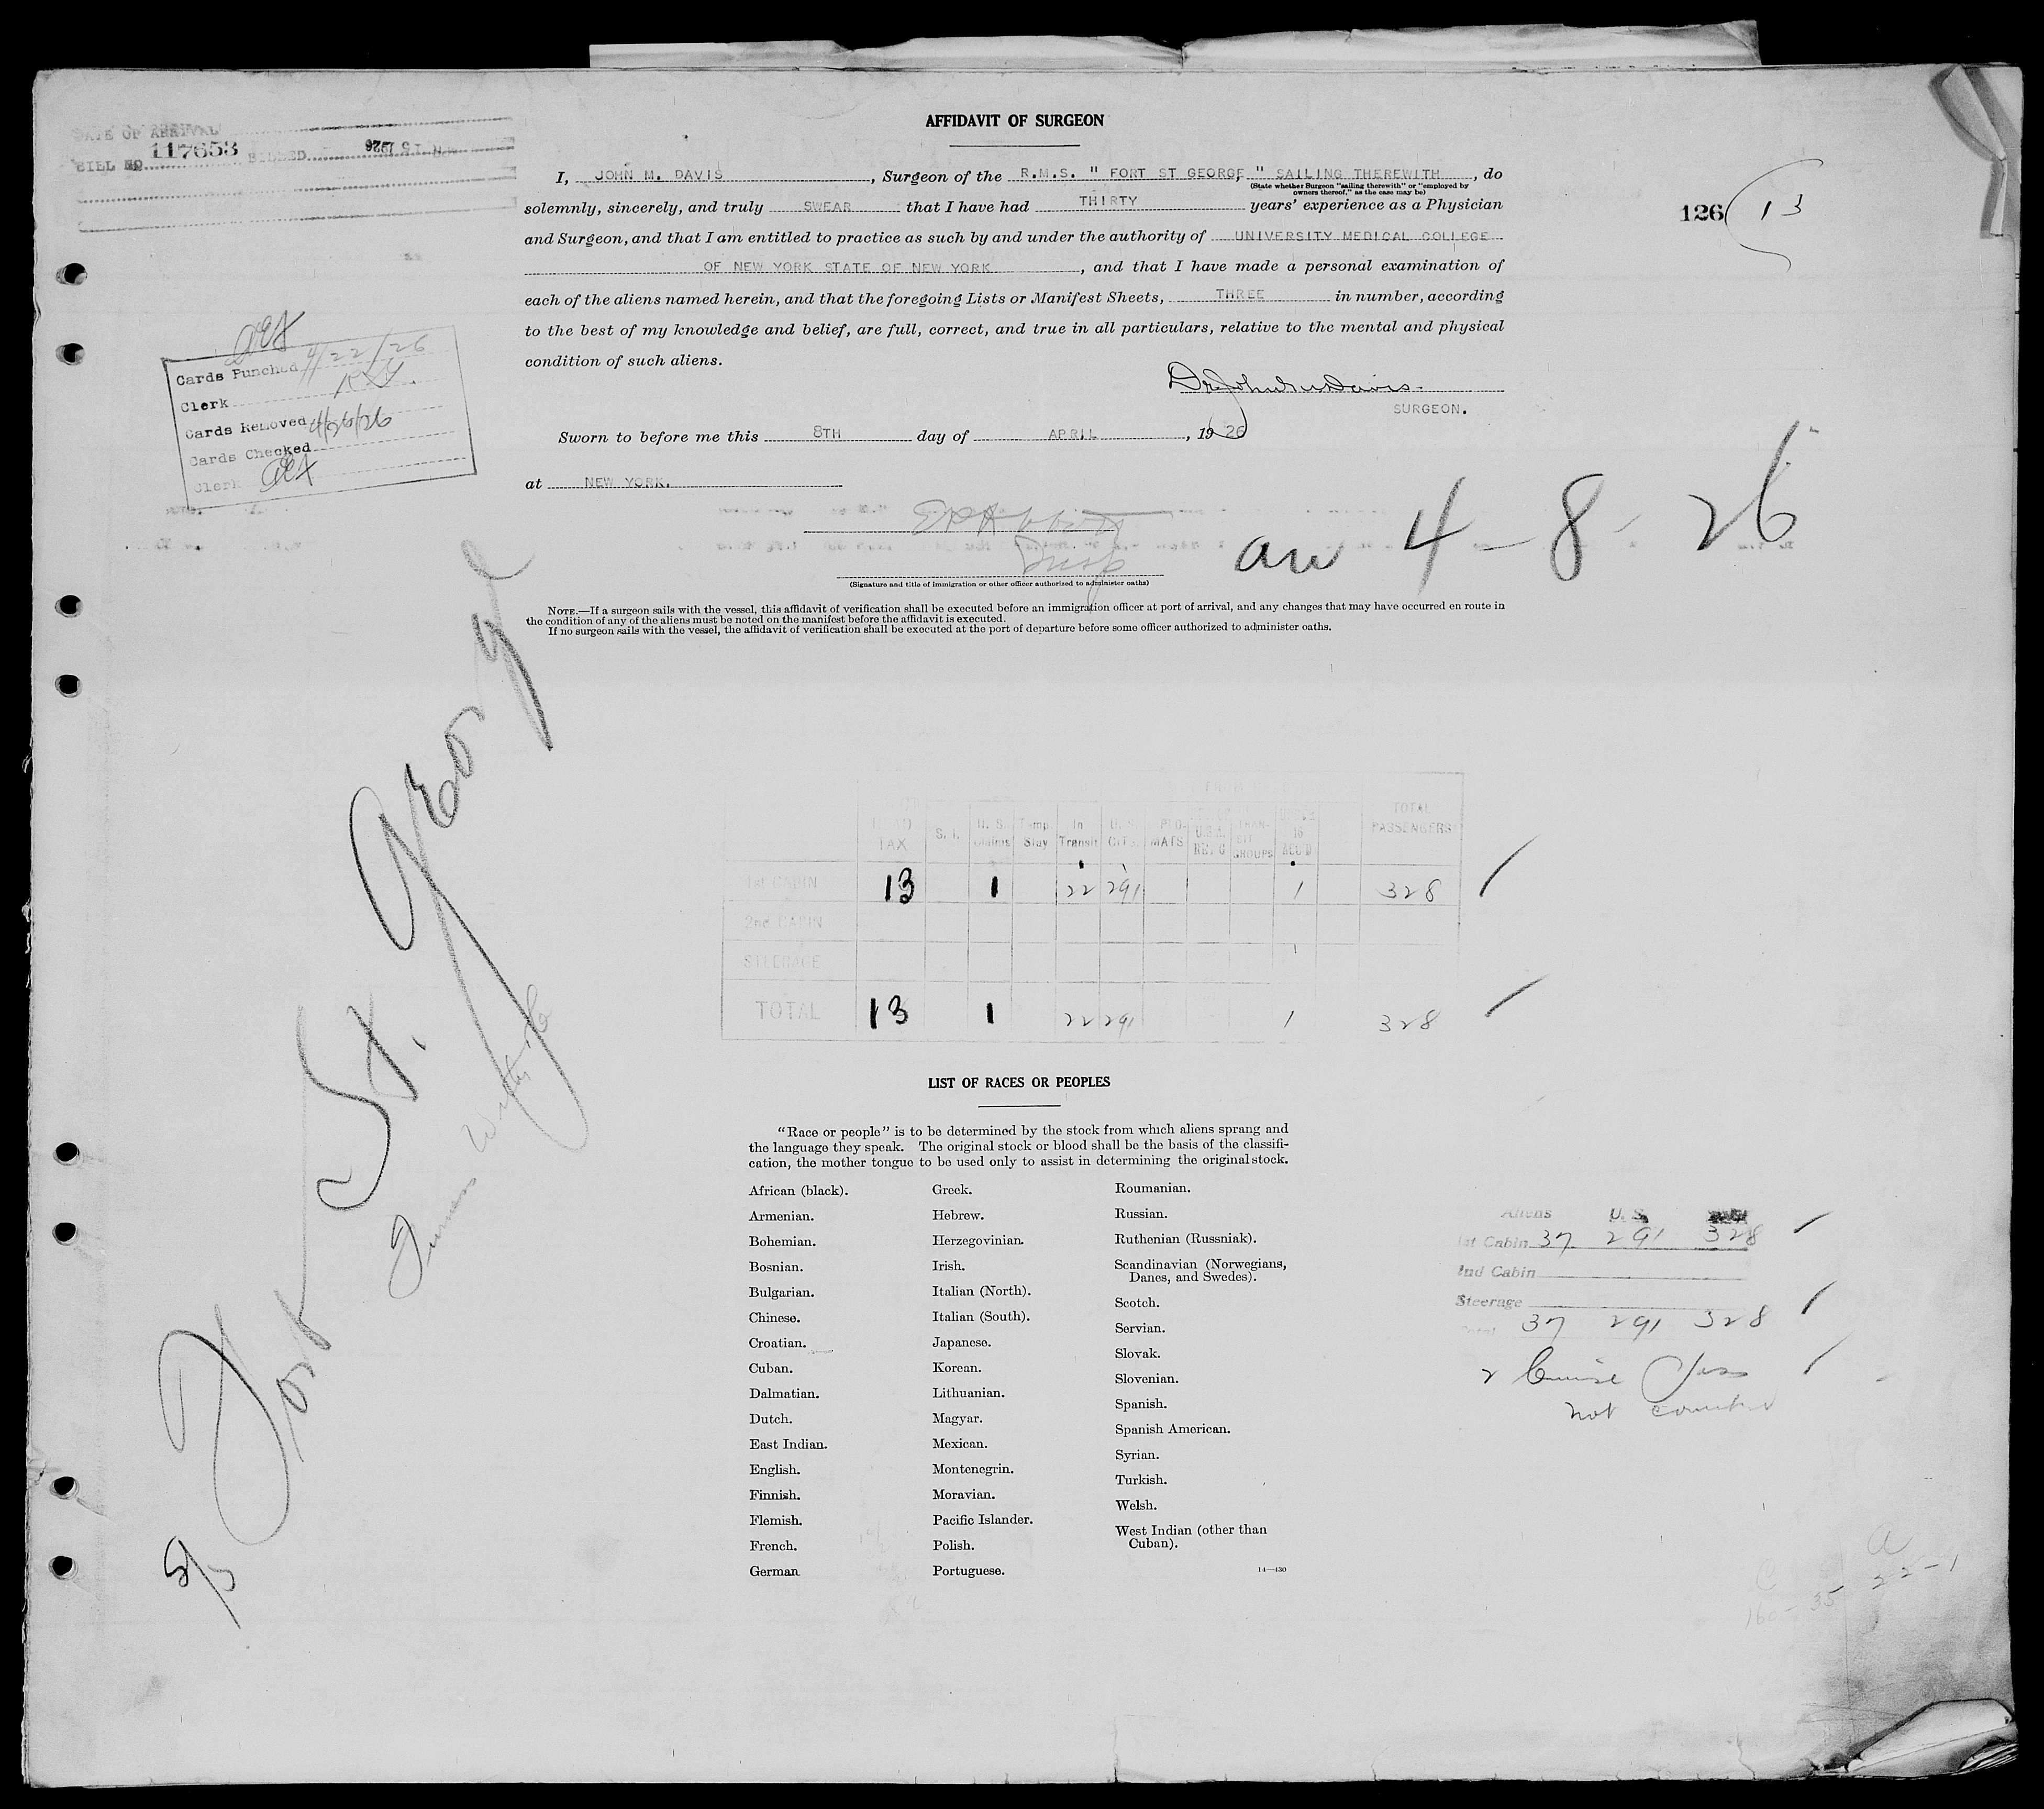 AFFIDAVIT OF SURGEON
DATE OF ARRIVAL
BILL NO. 117653 BILLED 1926
I, JOHN M. DAVIS, Surgeon of the R.M.S. " FORT ST GEORGE, " SAILING THEREWITH, do
(State whether Surgeon "sailing therewith" or "employed by
owners thereof," as the case may be)
solemnly, sincerely, and truly SWEAR that I have had THIRTY years' experience as a Physician
126 13
and Surgeon, and that I am entitled to practice as such by and under the authority of UNIVERSITY MEDICAL COLLEGE
OF NEW YORK STATE OF NEW YORK, and that I have made a personal examination of
each of the aliens named herein, and that the foregoing Lists or Manifest Sheets, THREE in number, according
to the best of my knowledge and belief, are full, correct, and true in all particulars, relative to the mental and physical
condition of such aliens.
Dr John M Davis
SURGEON.
Sworn to before me this 8TH day of APRIL, 1926
at NEW YORK.
Cards Punched 4/22/26
Clerk
Cards Removed 4/26/26
Cards Checked
Clerk
Insp
(Signature and title of immigration or other officer authorized to administer oaths)
arr 4-8-26
NOTE.—If a surgeon sails with the vessel, this affidavit of verification shall be executed before an immigration officer at port of arrival, and any changes that may have occurred en route in
the condition of any of the aliens must be noted on the manifest before the affidavit is executed.
If no surgeon sails with the vessel, the affidavit of verification shall be executed at the port of departure before some officer authorized to administer oaths.
S/S Fort St. George
Furness
HEAD TAX S. I. U. S. Temp. Stay In Transit U. S. CITS. U.S.A. 16 TOTAL PASSENGERS
1st CABIN 13 1 22 291 1 328
2nd CABIN
STEERAGE
TOTAL 13 1 22 291 1 328
LIST OF RACES OR PEOPLES
"Race or people" is to be determined by the stock from which aliens sprang and
the language they speak. The original stock or blood shall be the basis of the classifi-
cation, the mother tongue to be used only to assist in determining the original stock.
African (black).
Armenian.
Bohemian.
Bosnian.
Bulgarian.
Chinese.
Croatian.
Cuban.
Dalmatian.
Dutch.
East Indian.
English.
Finnish.
Flemish.
French.
German
Greek.
Hebrew.
Herzegovinian.
Irish.
Italian (North).
Italian (South).
Japanese.
Korean.
Lithuanian.
Magyar.
Mexican.
Montenegrin.
Moravian.
Pacific Islander.
Polish.
Portuguese.
Roumanian.
Russian.
Ruthenian (Russniak).
Scandinavian (Norwegians,
Danes, and Swedes).
Scotch.
Servian.
Slovak.
Slovenian.
Spanish.
Spanish American.
Syrian.
Turkish.
Welsh.
West Indian (other than
Cuban).
14—430
Aliens U. S.
1st Cabin 37 291 328
2nd Cabin
Steerage
Total 37 291 328
2 Cruise Pass
not counted